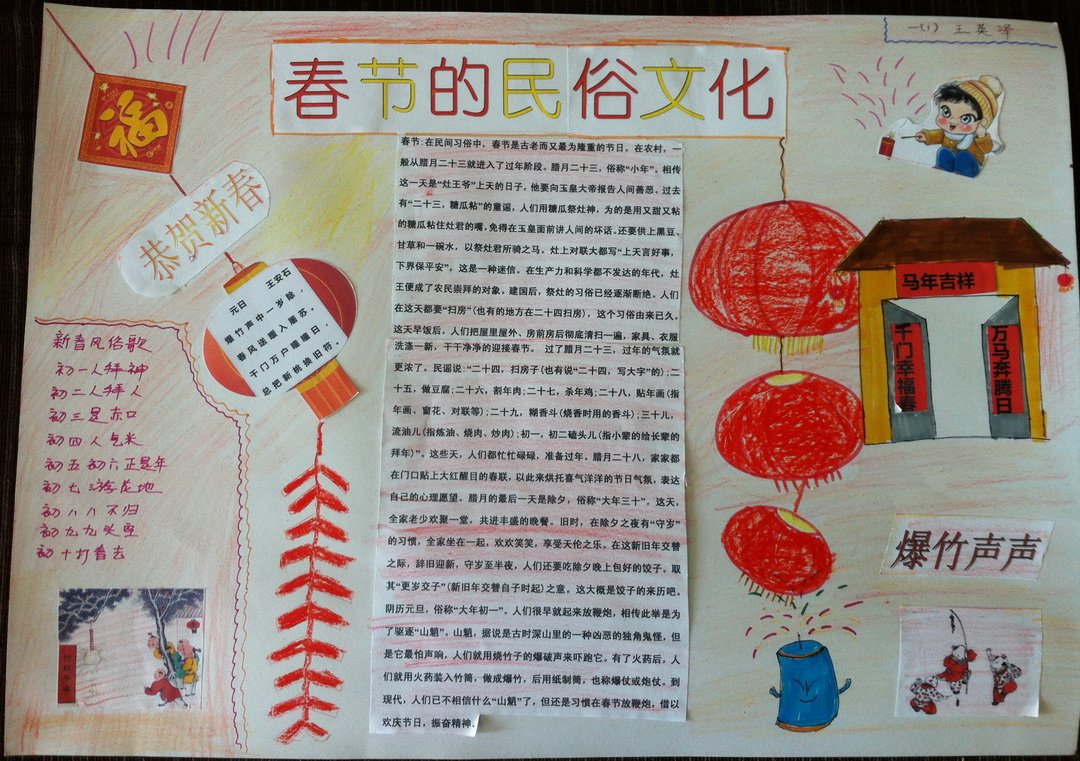 一(1) 王英泽
春节的民俗文化
福
恭贺新春
元日 王安石
爆竹声中一岁除，
春风送暖入屠苏。
千门万户曈曈日，
总把新桃换旧符。
新春风俗歌
初一人拜神
初二人拜人
初三是赤口
初四人乞米
初五初六正是年
初七游花地
初八八不归
初九九头空
初十打春去
春节:在民间习俗中，春节是古老而又最为隆重的节日。在农村，一
般从腊月二十三就进入了过年阶段。腊月二十三，俗称“小年”。相传
这一天是“灶王爷”上天的日子，他要向玉皇大帝报告人间善恶。过去
有“二十三，糖瓜粘”的童谣，人们用糖瓜祭灶神，为的是用又甜又粘
的糖瓜粘住灶君的嘴，免得在玉皇面前讲人间的坏话。还要供上黑豆、
甘草和一碗水，以祭灶君所骑之马。灶上对联大都写“上天言好事，
下界保平安”，这是一种迷信。在生产力和科学都不发达的年代，灶
王便成了农民崇拜的对象。建国后，祭灶的习俗已经逐渐断绝。人们
在这天都要“扫房”(也有的地方在二十四扫房)，这个习俗由来已久。
这天早饭后，人们把屋里屋外、房前房后彻底清扫一遍，家具、衣服
洗涤一新，干干净净的迎接春节。 过了腊月二十三，过年的气氛就
更浓了。民谣说:“二十四，扫房子(也有说“二十四，写大字”的);二
十五，做豆腐;二十六，割年肉;二十七，杀年鸡;二十八，贴年画(指
年画、窗花、对联等);二十九，糊香斗(烧香时用的香斗);三十儿，
流油儿(指炼油、烧肉、炒肉);初一，初二磕头儿(指小辈的给长辈的
拜年)”。这些天，人们都忙忙碌碌，准备过年。腊月二十八，家家都
在门口贴上大红醒目的春联，以此来烘托喜气洋洋的节日气氛，表达
自己的心理愿望。腊月的最后一天是除夕，俗称“大年三十”。这天，
全家老少欢聚一堂，共进丰盛的晚餐。旧时，在除夕之夜有“守岁”
的习惯，全家坐在一起，欢欢笑笑，享受天伦之乐。在这新旧年交替
之际，辞旧迎新，守岁至半夜，人们还要吃除夕晚上包好的饺子。取
其“更岁交子”(新旧年交替自子时起)之意。这大概是饺子的来历吧。
阴历元旦，俗称“大年初一”。人们很早就起来放鞭炮，相传此举是为
了驱逐“山魈”。山魈，据说是古时深山里的一种凶恶的独角鬼怪，但
是它最怕声响，人们就用烧竹子的爆破声来吓跑它。有了火药后，人
们就用火药装入竹筒，做成爆竹，后用纸制筒，也称爆仗或炮仗。到
现代，人们已不相信什么“山魈”了，但还是习惯在春节放鞭炮，借以
欢庆节日，振奋精神。
马年吉祥
千门幸福春
万马奔腾日
爆竹声声
竹报平安